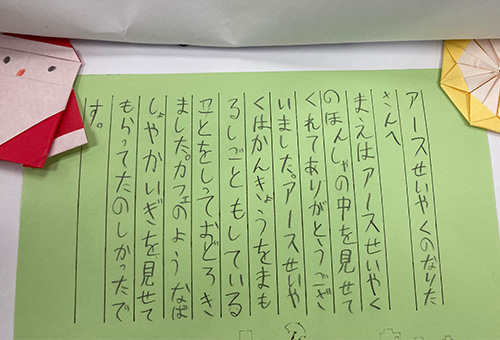 アースせいやくのなりた
さんへ
まえはアースせいやく
のほんしゃの中を見せて
くれてありがとうござ
いました。アースせいや
くはかんきょうをまも
るしごともしている
ことをしっておどろき
ました。カフェのようなば
しょやかいぎを見せて
もらってたのしかったで
す。